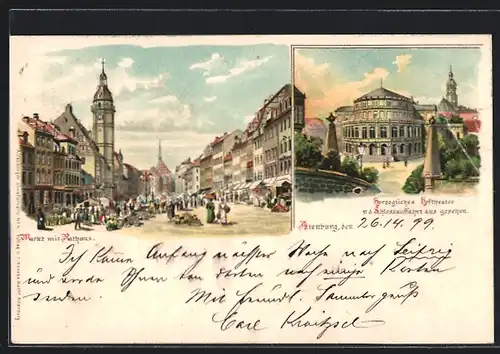 Markt mit Rathaus.
Herzogliches Hoftheater
v.d. Schlossauffahrt aus gesehen.
Altenburg, den 26. 14. 99
Ich kame Anfang nächster Woche nach Leipzig
und werde Ihnen von dort auf einige Karten
senden. Mit freundl. Sammlergruß
Carl